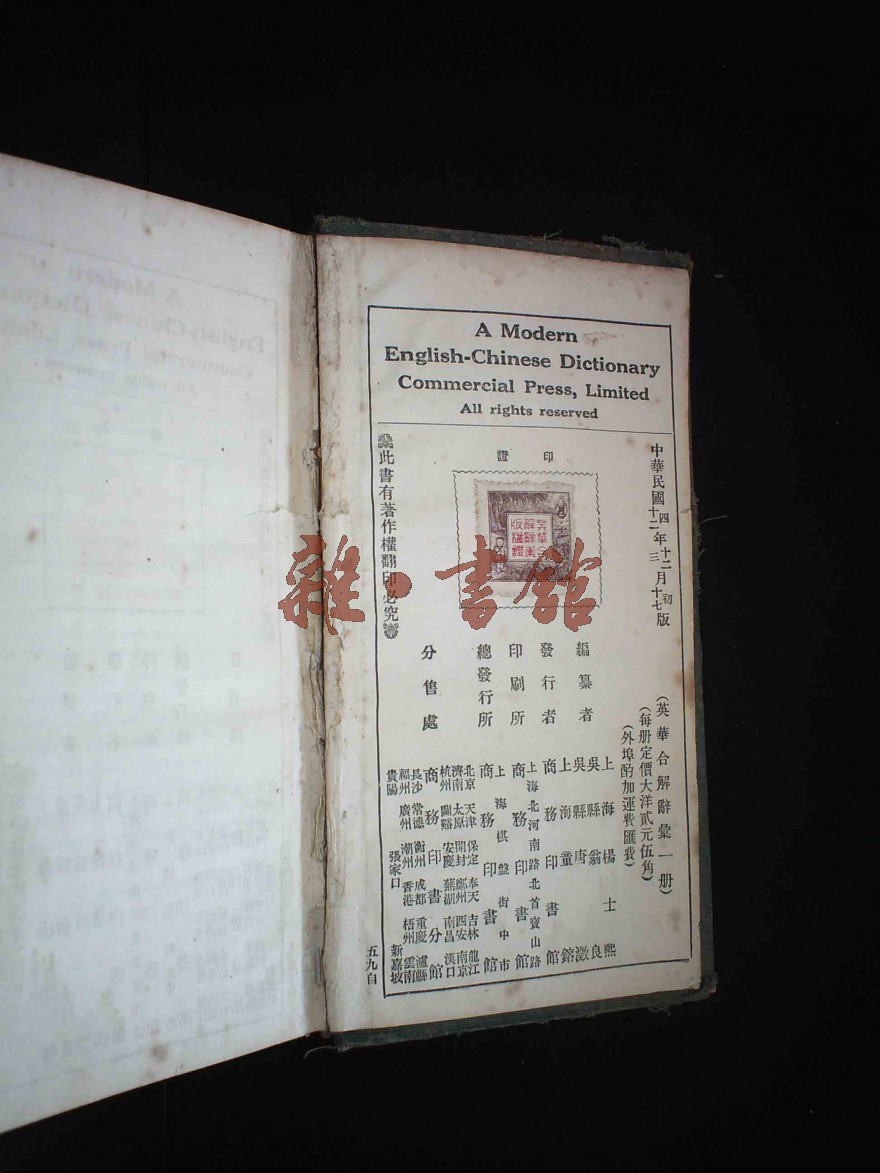 A Modern
English-Chinese Dictionary
Commercial Press, Limited
All rights reserved
中華民國四年十二月初版
十二年三月十七版
印證
此書有著作權翻印必究
(英華合解辭彙一册)
(每册定價大洋貳元伍角)
(外埠酌加運費匯費)
編纂者
上海楊士熙
吳縣翁良
吳縣唐澂
上海董鎔
發行者
商務印書館
印刷所
上海北河南路北首寶山路
商務印書館
總發行所
上海棋盤街中市
商務印書館
分售處
北京 天津 保定 奉天 吉林 龍江
濟南 太原 開封 鄭州 西安 南京
杭州 蘭谿 安慶 蕪湖 南昌 漢口
商務印書分館
長沙 常德 衡州 成都 重慶 瀘縣
福州 廣州 潮州 香港 梧州 雲南
貴陽 張家口 新嘉坡
五九自
雜·書館